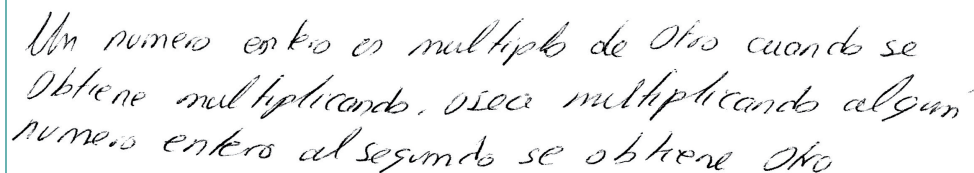 Un numero entero es multiplo de otro cuando se
Obtiene multiplicando, osea multiplicando algun
numero entero al segundo se obtiene otro